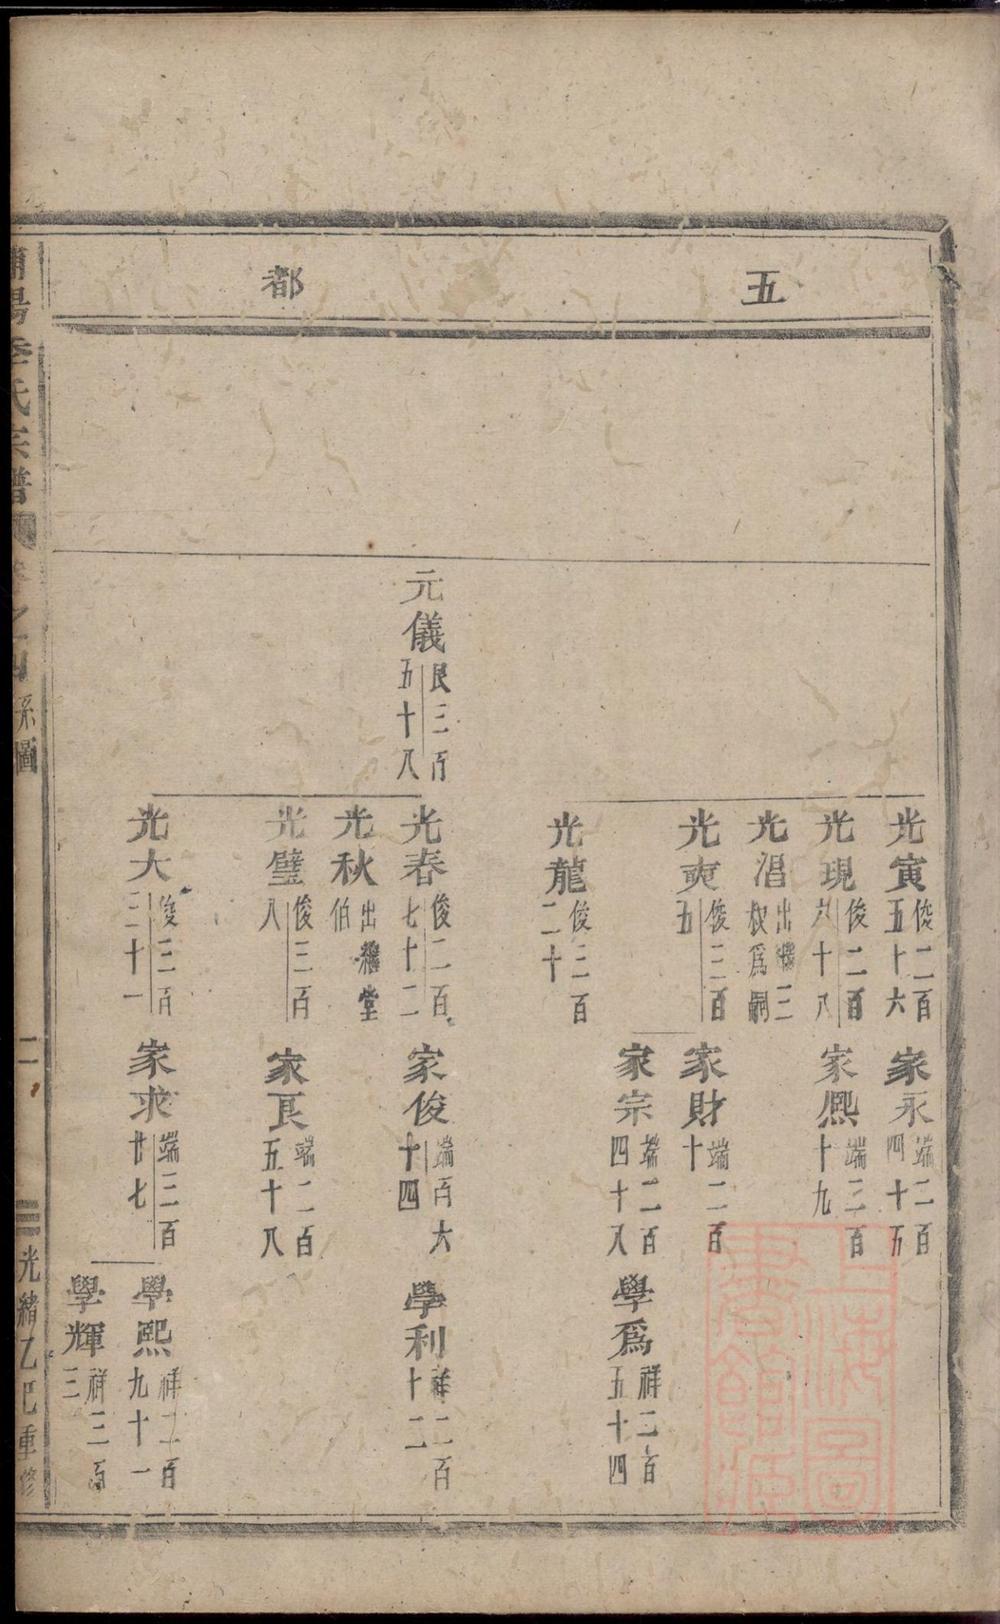 五都
元儀 良三百五十八
光寅 俊二百五十六
光現 俊二百六十八
光沼 出繼三
光奭 俊三百五
光龍 俊三百二十
光春 俊二百七十二
光秋 出繼堂伯
光璧 俊三百八
光大 俊三百三十一
家永 端二百四十五
家熈 端三百十九
家財 端二百十
家宗 端二百四十八
家俊 端百六十四
家良 端二百五十八
家求 端三百廿七
學爲 祥二百五十四
學利 祥二百十二
學熙 祥二百九十一
學輝 祥三百三
浦陽 氏宗譜
卷之四
系圖
二
光緒乙巳重修
上海圖書館藏